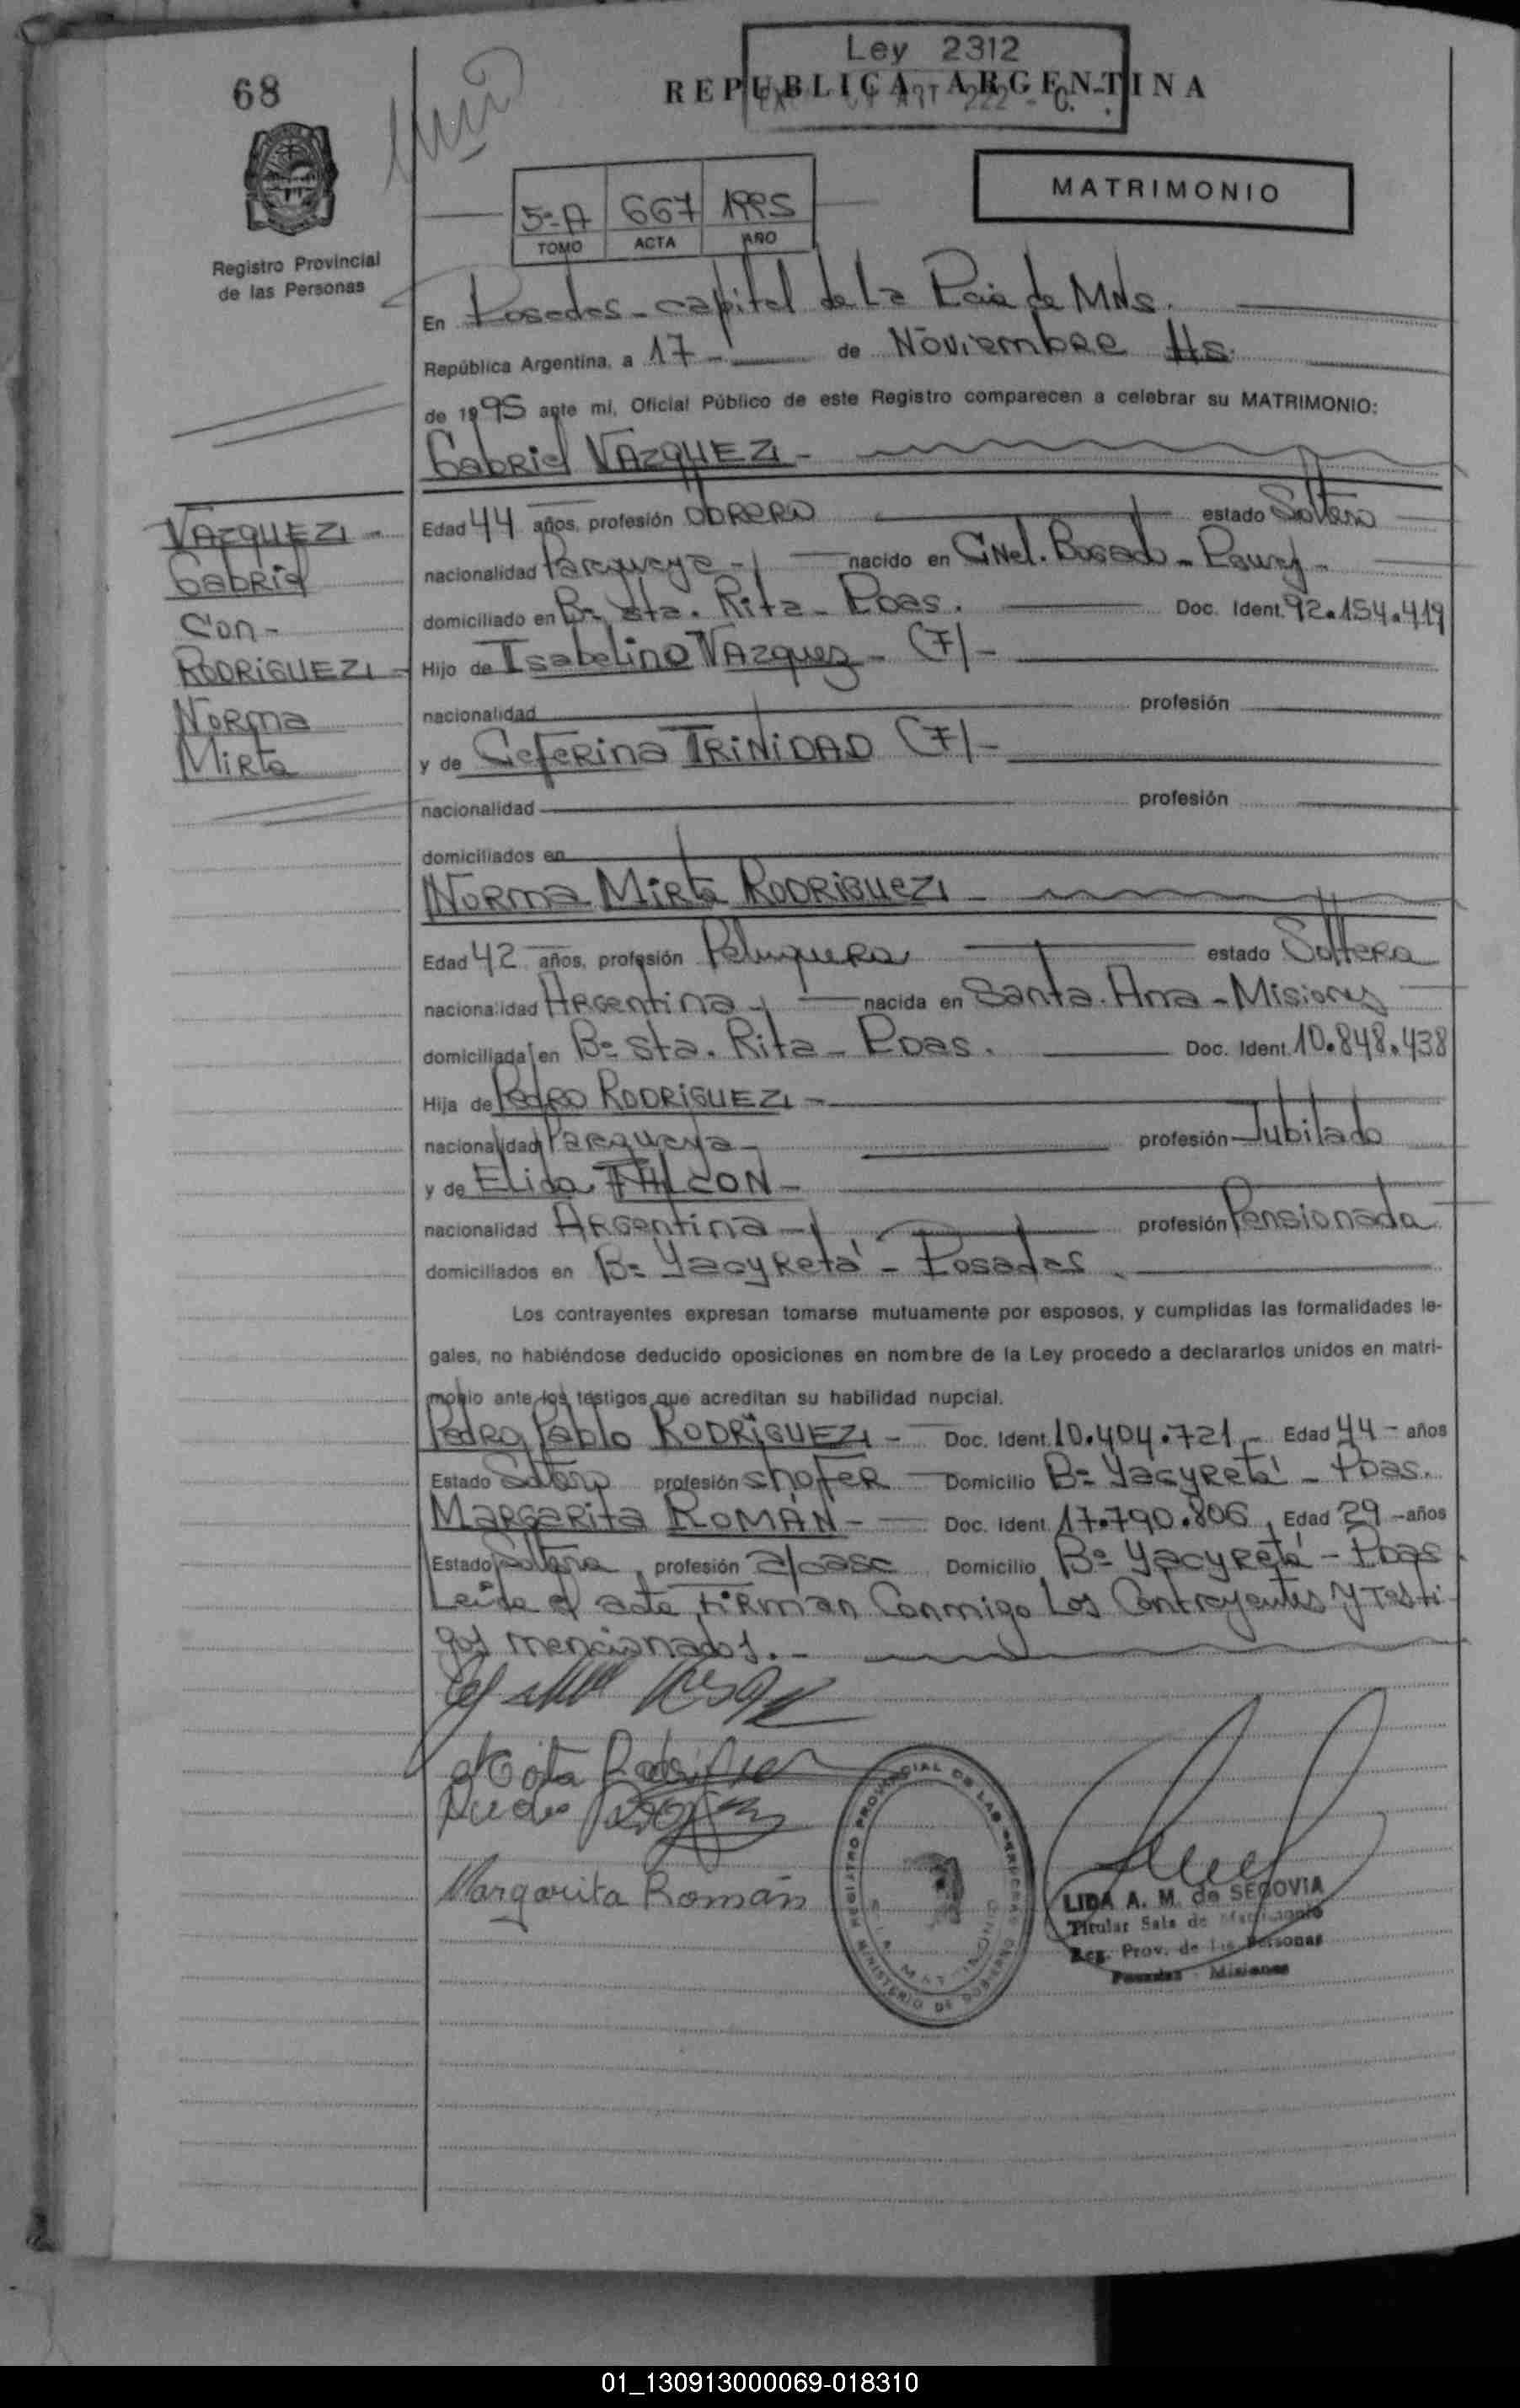 68
Ley 2312
REPUBLICA ARGENTINA
ART 222 - C.
MATRIMONIO
5º-A 667 1995
TOMO ACTA AÑO
Registro Provincial
de las Personas
En Posadas - capital de La Pcia de MNS.
República Argentina, a 17 - de Noviembre Hs.
de 1995 ante mi, Oficial Público de este Registro comparecen a celebrar su MATRIMONIO:
Gabriel VAZQUEZ -
VAZQUEZ -
Gabriel
Con -
RODRIGUEZ -
Norma
Mirta
Edad 44 años, profesión Obrero estado Soltero
nacionalidad Paraguaya - nacido en Cnel. Bogado - Paraguay -
domiciliado en Bº Sta. Rita - Pdas. Doc. Ident. 92.154.419
Hijo de Isabelino VAzquez - (F) -
nacionalidad profesión
y de Ceferina TRINIDAD (F) -
nacionalidad profesión
domiciliados en
Norma Mirta RODRIGUEZ -
Edad 42 años, profesión Peluquera estado Soltera
nacionalidad Argentina - nacida en Santa. Ana - Misiones
domiciliada en Bº Sta. Rita - Pdas. Doc. Ident. 10.848.438
Hija de Pedro RODRIGUEZ -
nacionalidad Paraguaya - profesión Jubilado
y de Elida FALCON -
nacionalidad Argentina - profesión Pensionada
domiciliados en Bº Yacyretá - Posadas.
Los contrayentes expresan tomarse mutuamente por esposos, y cumplidas las formalidades le-
gales, no habiéndose deducido oposiciones en nombre de la Ley procedo a declararlos unidos en matri-
monio ante los testigos que acreditan su habilidad nupcial.
Pedro Pablo RODRIGUEZ - Doc. Ident. 10.404.721 - Edad 44 - años
Estado Soltero profesión shofer Domicilio Bº Yacyretá - Pdas.
Margarita ROMÁN - Doc. Ident. 17.790.806, Edad 29 - años
Estado Soltera, profesión a/casa Domicilio Bº Yacyretá - Pdas
Leída el acta, firman Conmigo Los Contrayentes y Testi
gos mencionados. -
Margarita Román
REGISTRO PROVINCIAL DE LAS PERSONAS
MINISTERIO DE GOBIERNO
LIDA A. M. de SEGOVIA
Titular Sala de Matrimonio
Reg. Prov. de las Personas
Posadas - Misiones
01_130913000069-018310